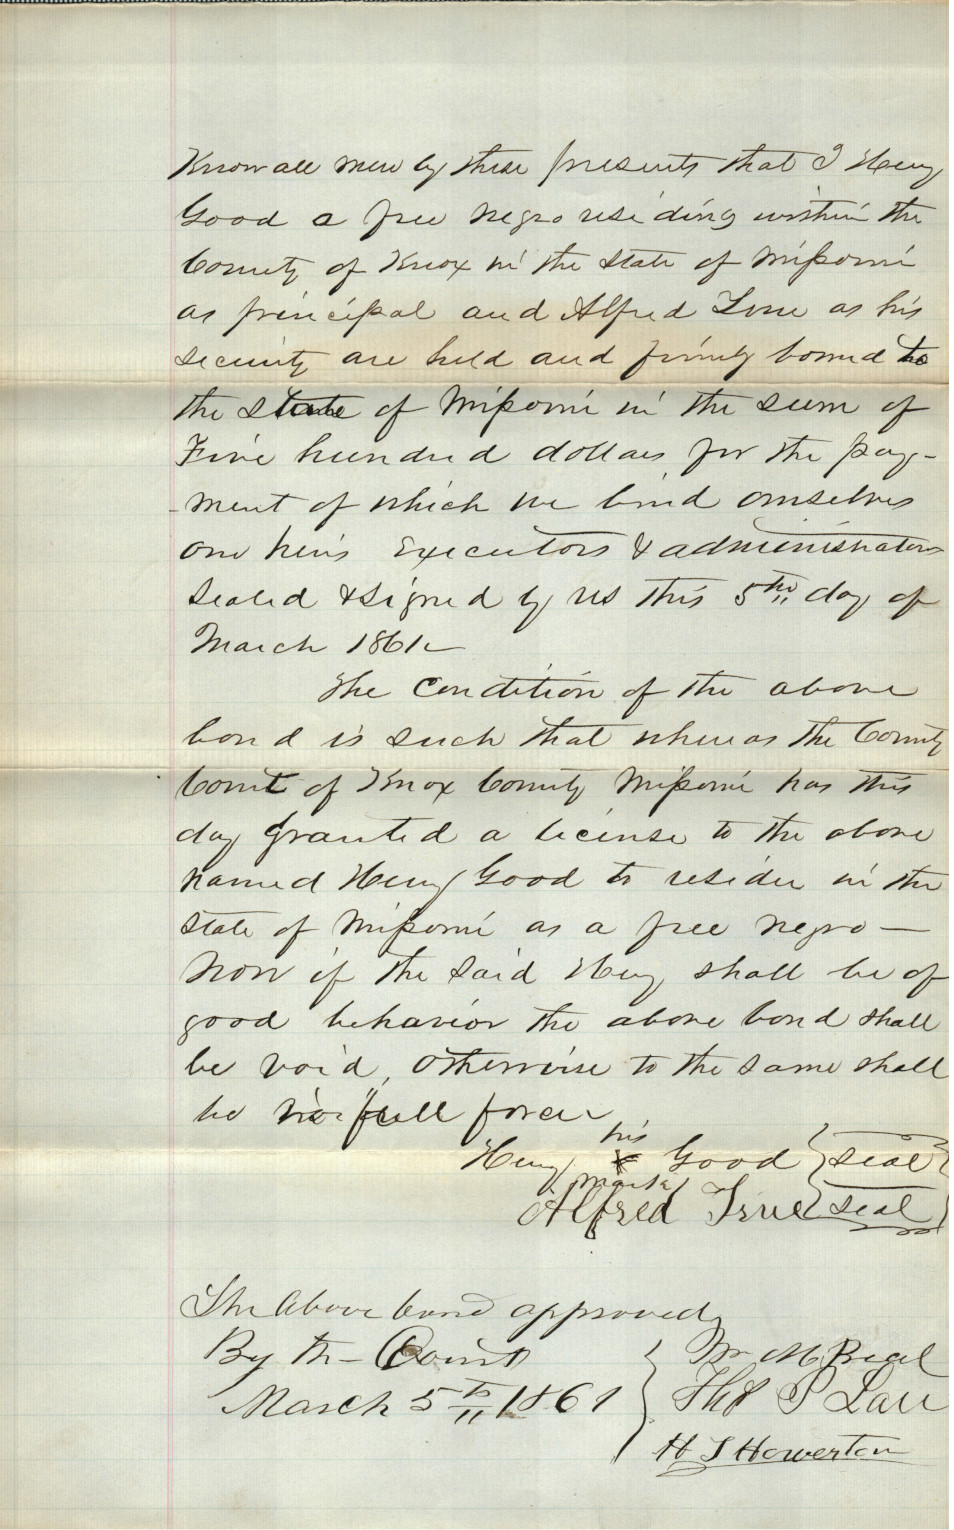 Know all men by these presents that I Henry
Good a free negro residing within the
County of Knox in the State of Missouri
as principal and Alfred True as his
security are held and firmly bound to
the State of Missouri in the sum of
Five hundred dollars for the pay-
ment of which we bind ourselves
our heirs Executors & administrators
Sealed & signed by us this 5th day of
March 1861
The Condition of the above
bond is such that whereas the County
Court of Knox County Missouri has this
day granted a license to the above
named Henry Good to reside in the
State of Missouri as a free negro —
Now if the said Henry shall be of
good behavior the above bond shall
be void, otherwise to the same shall
be in full force
his
Henry X Good {seal}
mark
Alfred True {seal}
The Above bond approved
By the Court
March 5th 1861
Wm M Beal
Thos P Lair
H J Howerton